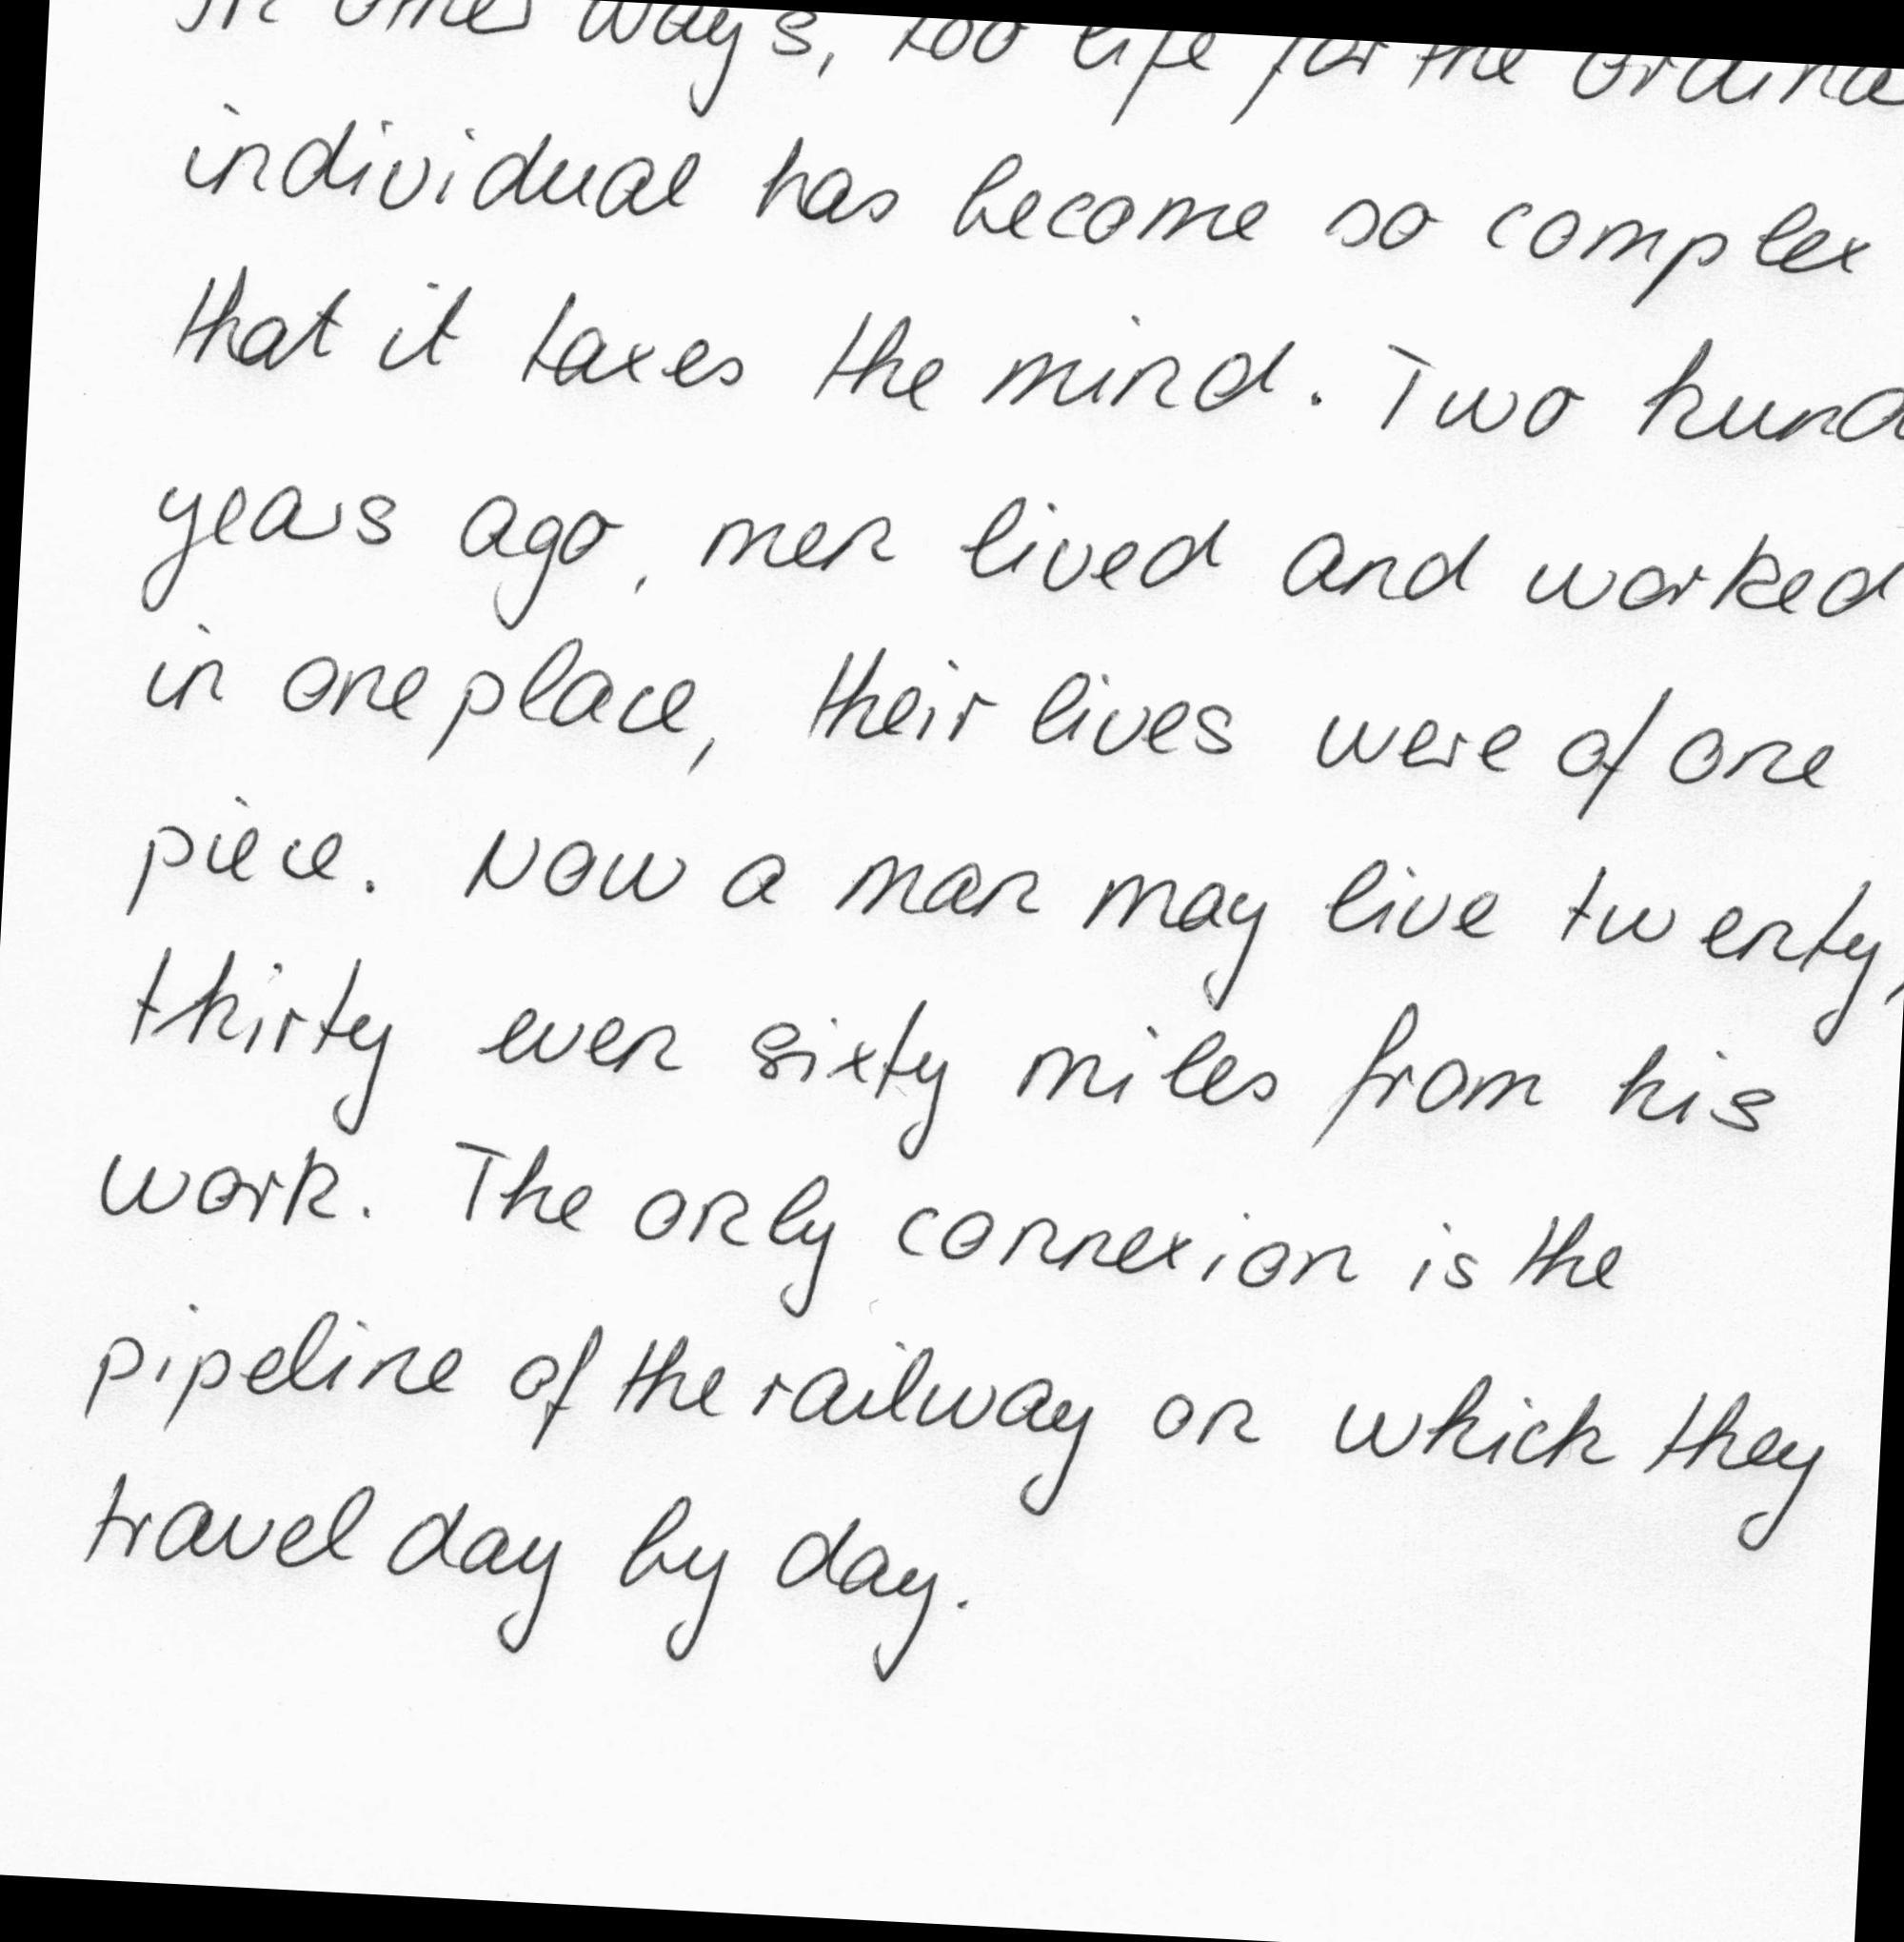 In other ways, too life for the ordina
individual has become so complex
that it taxes the mind. Two hund
years ago, men lived and worked
in one place, their lives were of one
piece. Now a man may live twenty,
thirty even sixty miles from his
work. The only connexion is the
pipeline of the railway on which they
travel day by day.